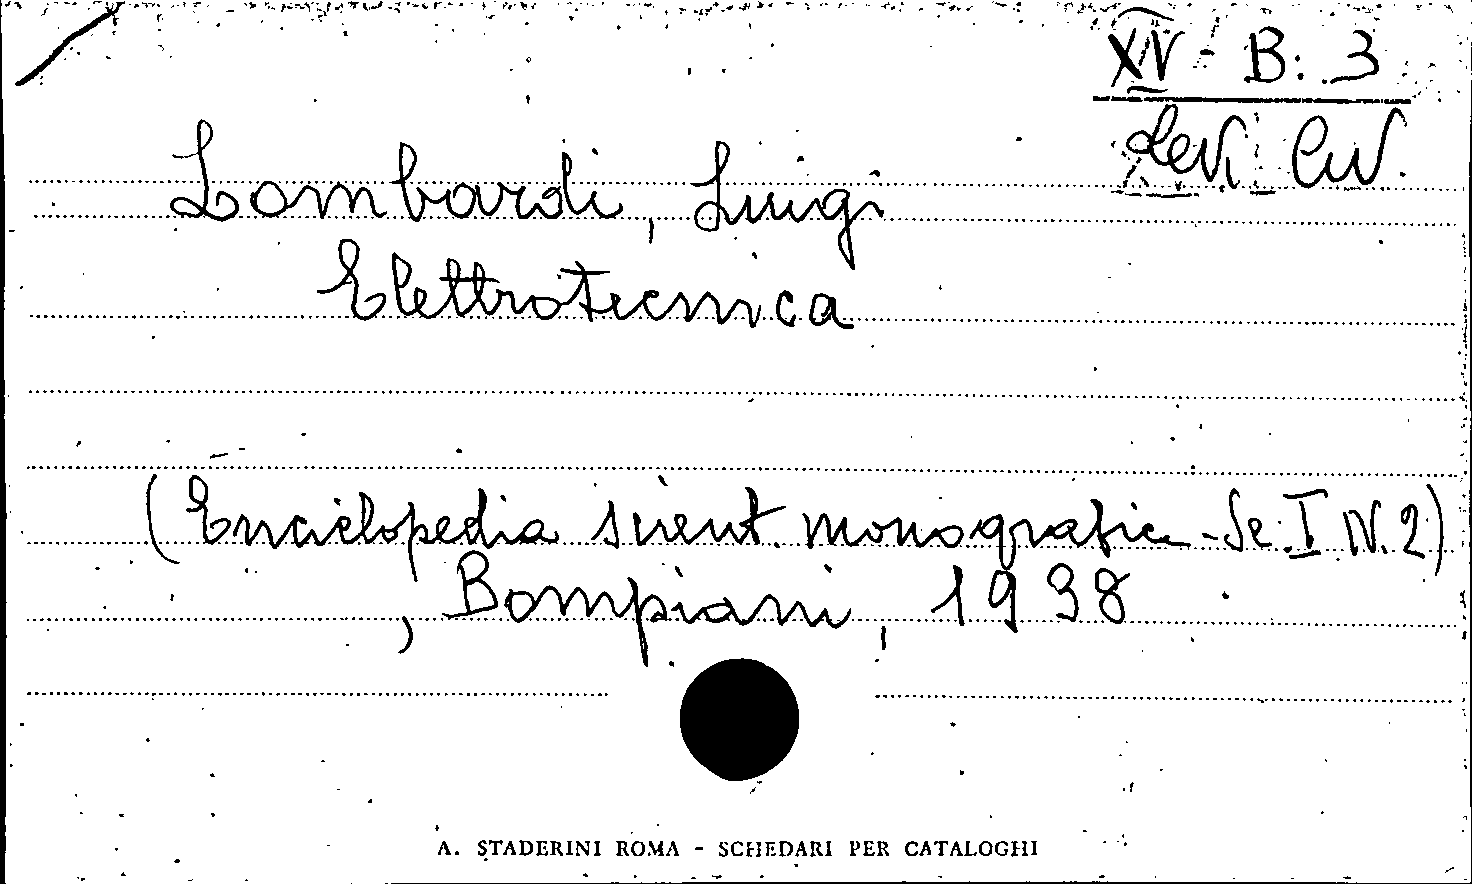 XV - B. 3
Levi Civ.
Lombardi, Luigi
Elettrotecnica
(Enciclopedia scient. monografica - Se. I N. 2)
, Bompiani, 1938
A. STADERINI ROMA - SCHEDARI PER CATALOGHI